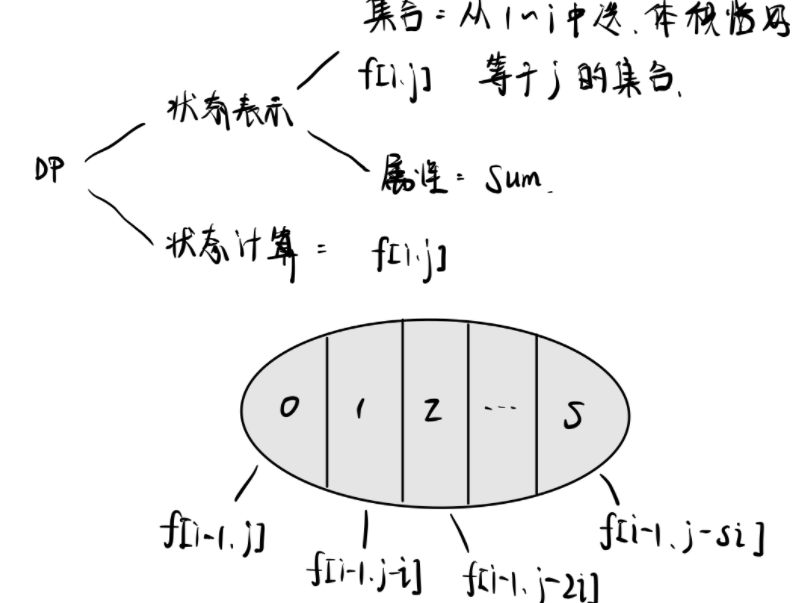 集合 = 从1~i中选、体积恰好
f[i.j] 等于j的集合.
状态表示
DP
属性 = sum.
状态计算 = f[i.j]
0 1 2 ... s
f[i-1.j] f[i-1.j-i] f[i-1.j-2i] f[i-1.j-si]